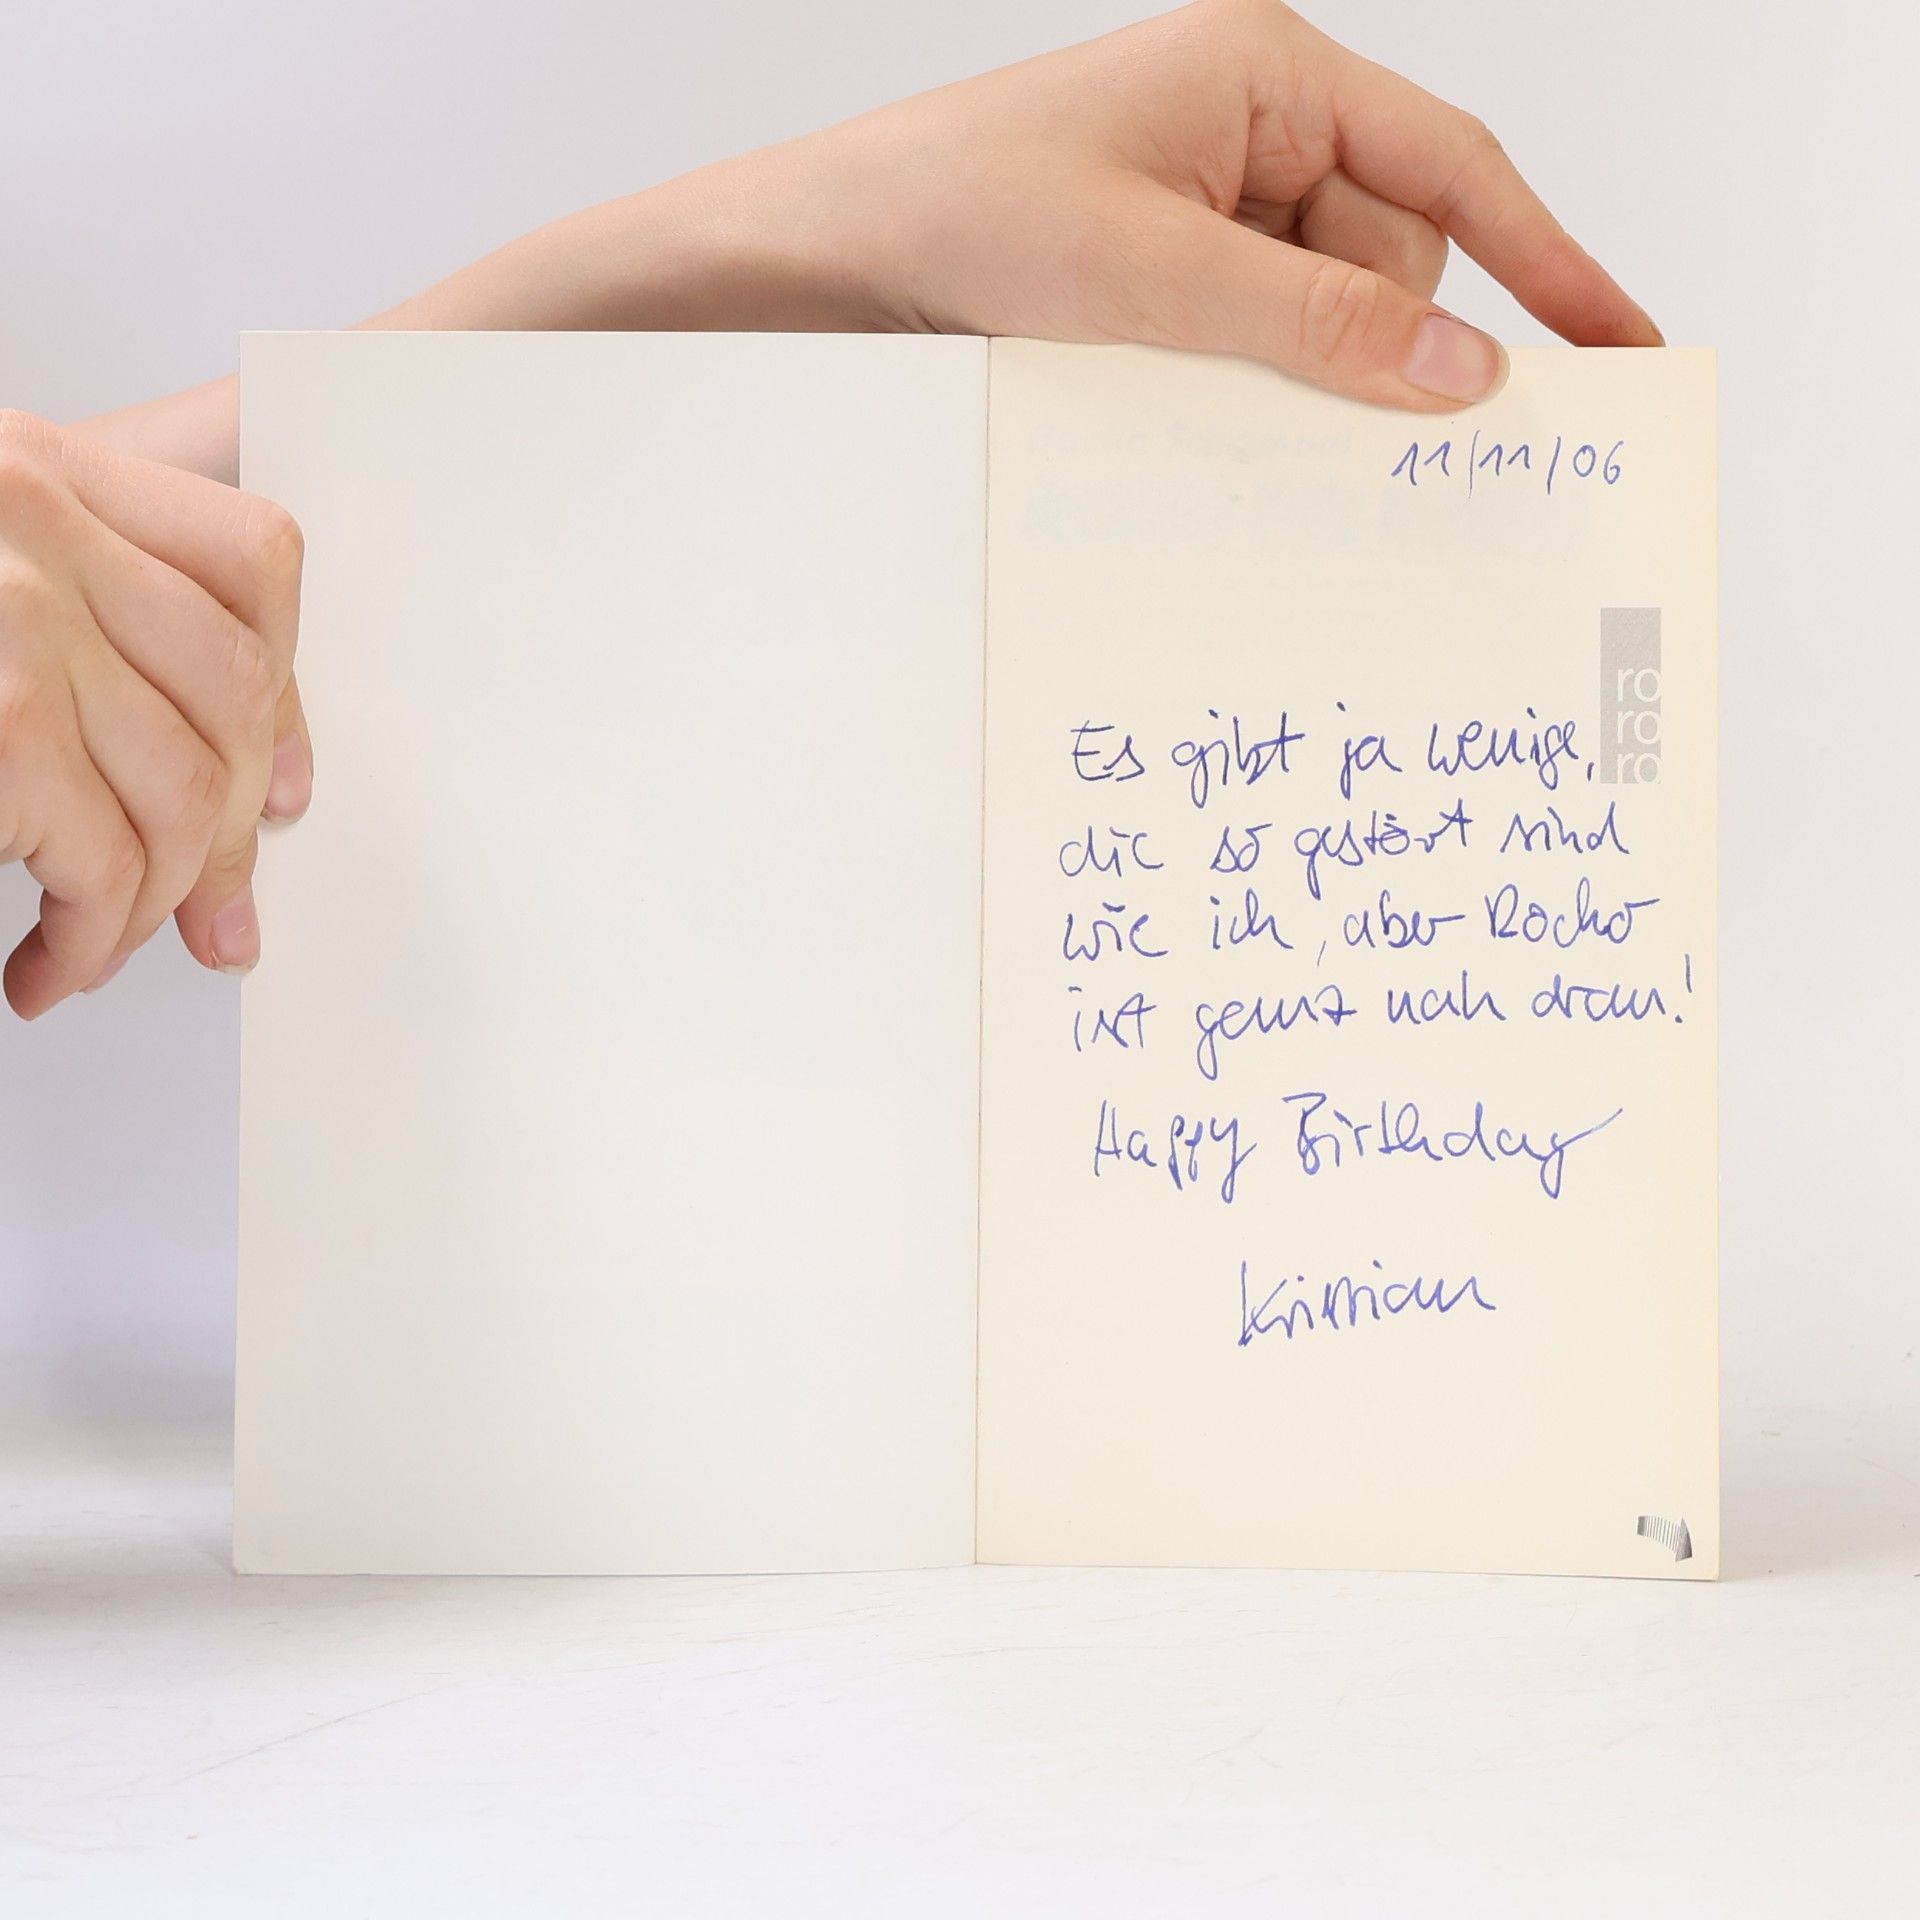 11/11/06
ro
ro
ro
Es gibt ja wenige,
die so gestört sind
wie ich, aber Rocko
ist ganz nah dran!
Happy Birthday
Kristian